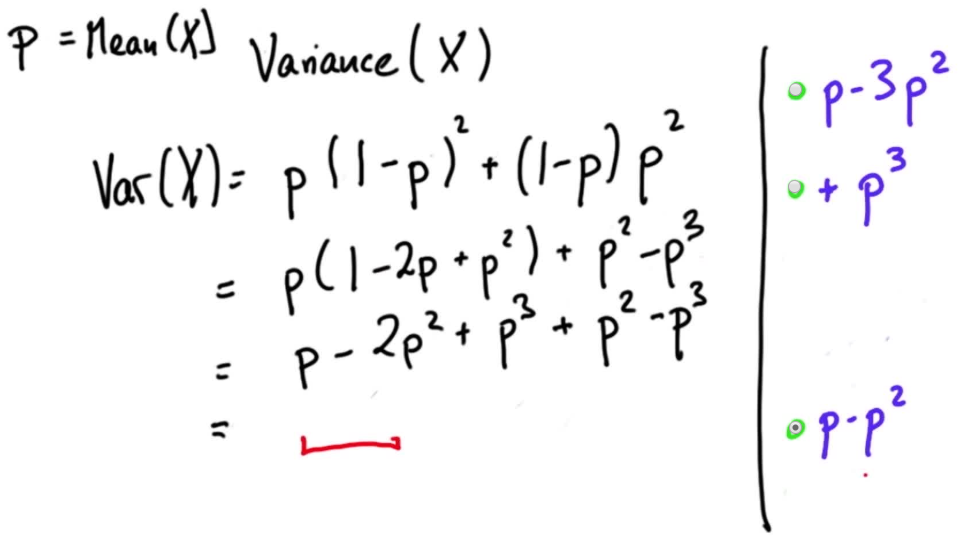 P = Mean(X) Variance(X)
Var(X) = p(1-p)² + (1-p)p²
= p(1-2p+p²) + p²-p³
= p - 2p² + p³ + p² - p³
=
p-3p²
+ p³
p-p²